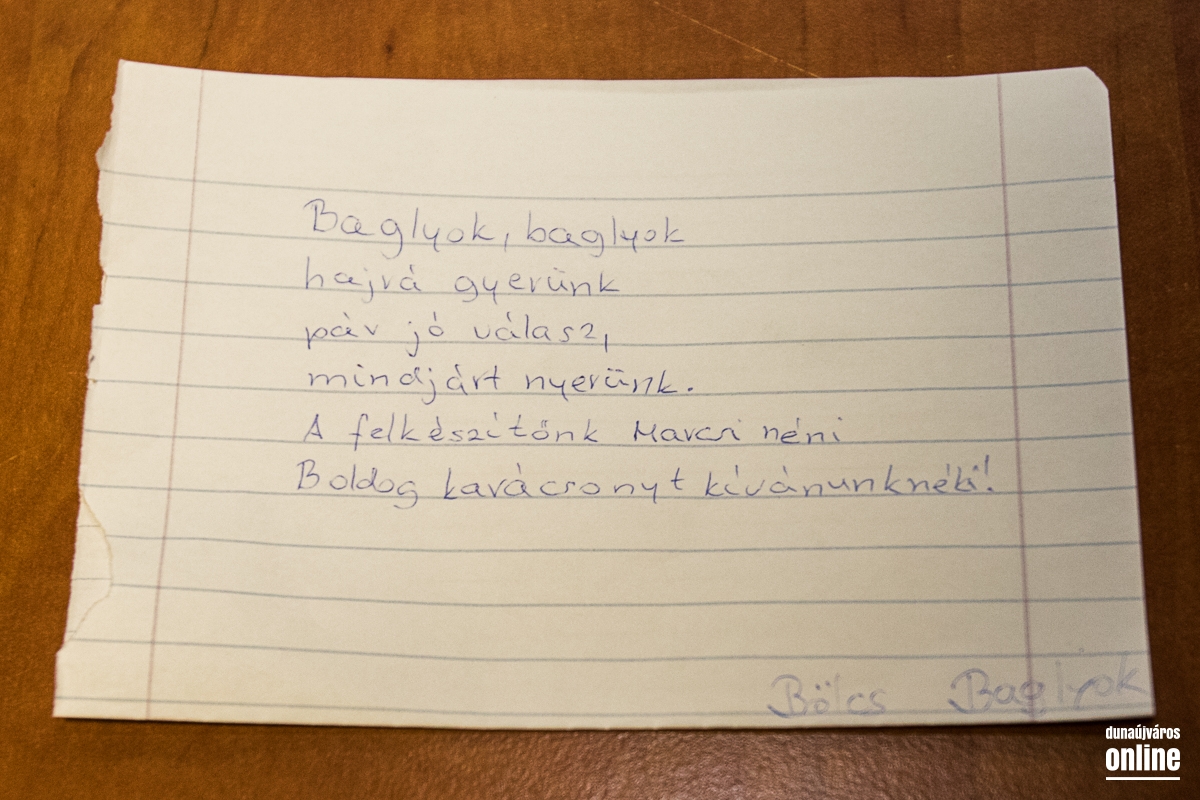 Baglyok, baglyok
hajrá gyerünk
pár jó válasz,
mindjárt nyerünk.
A felkészítőnk Marcsi néni
Boldog karácsonyt kívánunknéki!
Bölcs Baglyok
dunaújváros
online